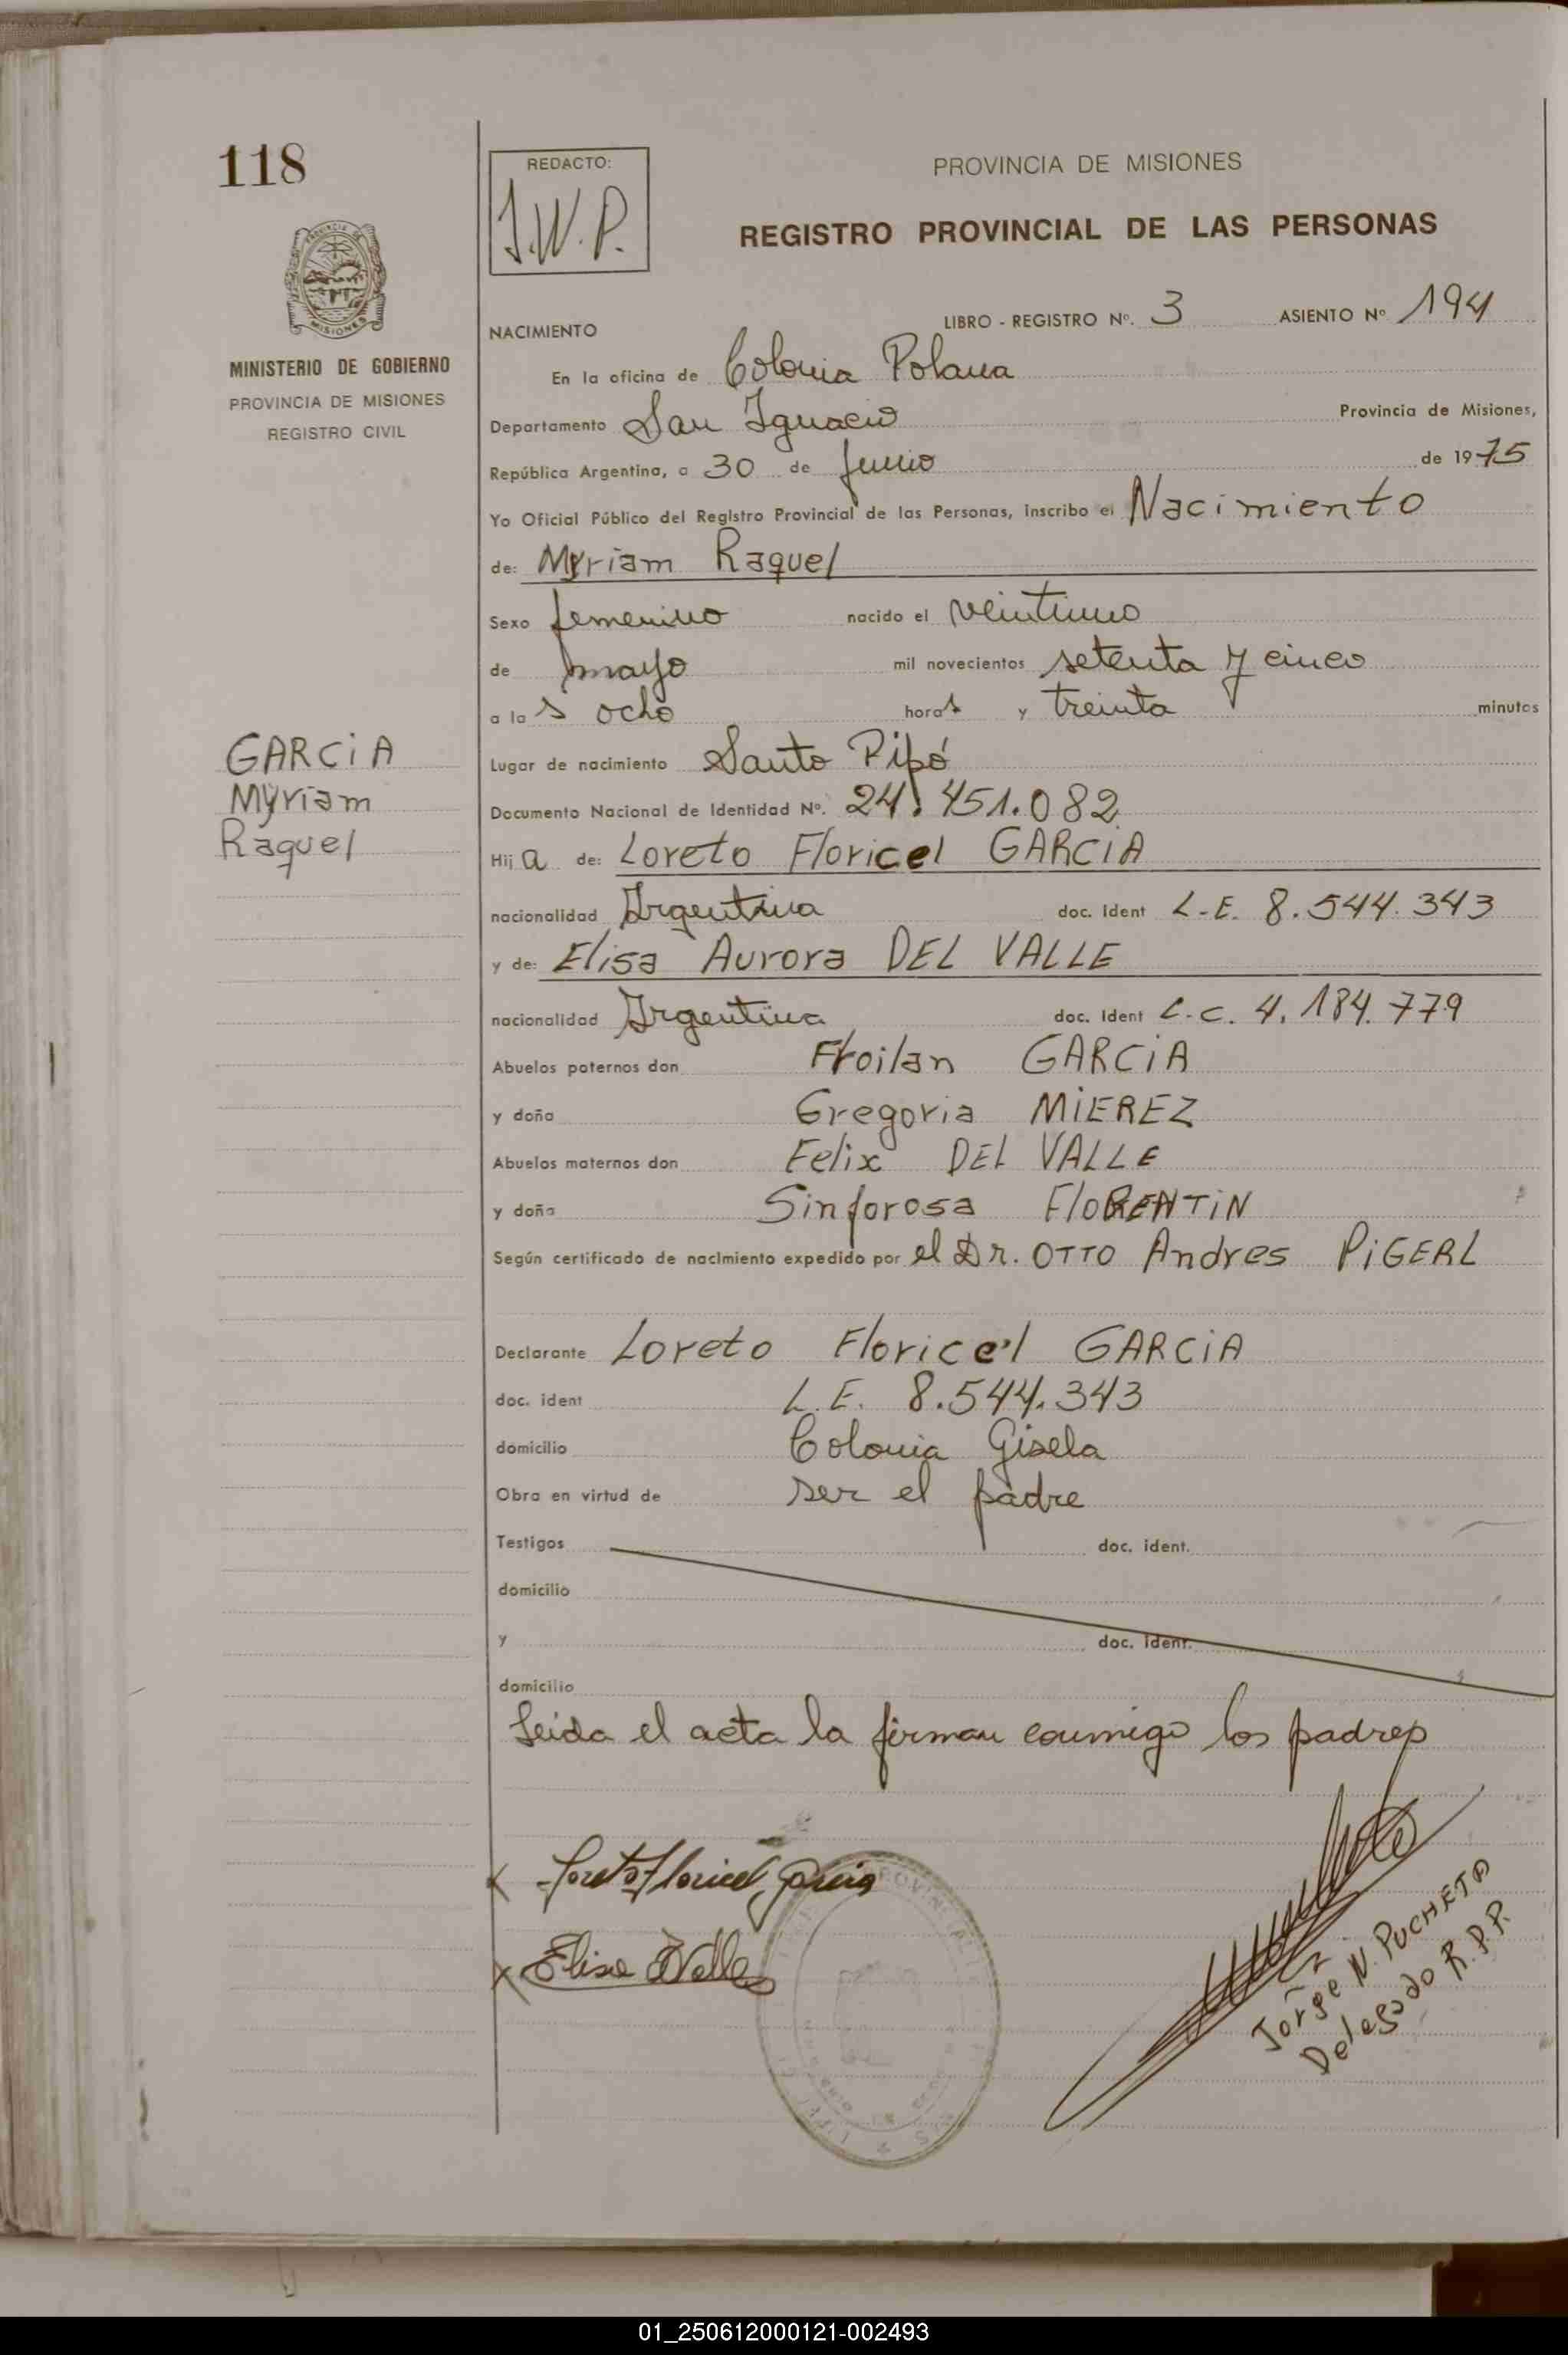 118
MISIONES
MINISTERIO DE GOBIERNO
PROVINCIA DE MISIONES
REGISTRO CIVIL
GARCiA
Myriam
Raquel
REDACTO:
J.W.P.
PROVINCIA DE MISIONES
REGISTRO PROVINCIAL DE LAS PERSONAS
NACIMIENTO LIBRO - REGISTRO Nº. 3 ASIENTO Nº 194
En la oficina de Colonia Polana
Departamento San Ignacio Provincia de Misiones,
República Argentina, a 30 de Junio de 1975
Yo Oficial Público del Registro Provincial de las Personas, inscribo el Nacimiento
de: Myriam Raquel
Sexo femenino nacido el veintiuno
de mayo mil novecientos setenta y cinco
a las ocho horas y treinta minutos
Lugar de nacimiento Santo Pipó
Documento Nacional de Identidad Nº. 24.451.082
Hija de: Loreto Floricel GARCiA
nacionalidad Argentina doc. ident L.E. 8.544.343
y de: Elisa Aurora DEL VALLE
nacionalidad Argentina doc. ident L.C. 4.184.779
Abuelos paternos don Froilan GARCiA
y doña Gregoria MiEREZ
Abuelos maternos don Felix DEL VALLE
y doña Sinforosa FloRENTiN
Según certificado de nacimiento expedido por el Dr. OTTO Andres PiGERL
Declarante Loreto Floricel GARCiA
doc. ident L.E. 8.544.343
domicilio Colonia Gisela
Obra en virtud de ser el padre
Testigos doc. ident.
domicilio
y doc. ident.
domicilio
Leida el acta la firman conmigo los padres
x Loreto Floricel Garcia
x Elisa DValle
Jorge N. PUCHETA
Delegado R.P.P.
01_250612000121-002493